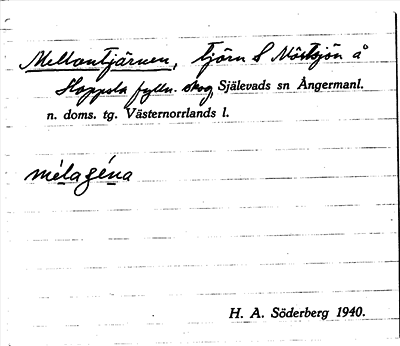 Mellantjärnen, tjärn S Mörtsjön å
Hoppsta fylln. skog, Själevads sn Ångermanl.
n. doms. tg. Västernorrlands l.
H. A. Söderberg 1940.